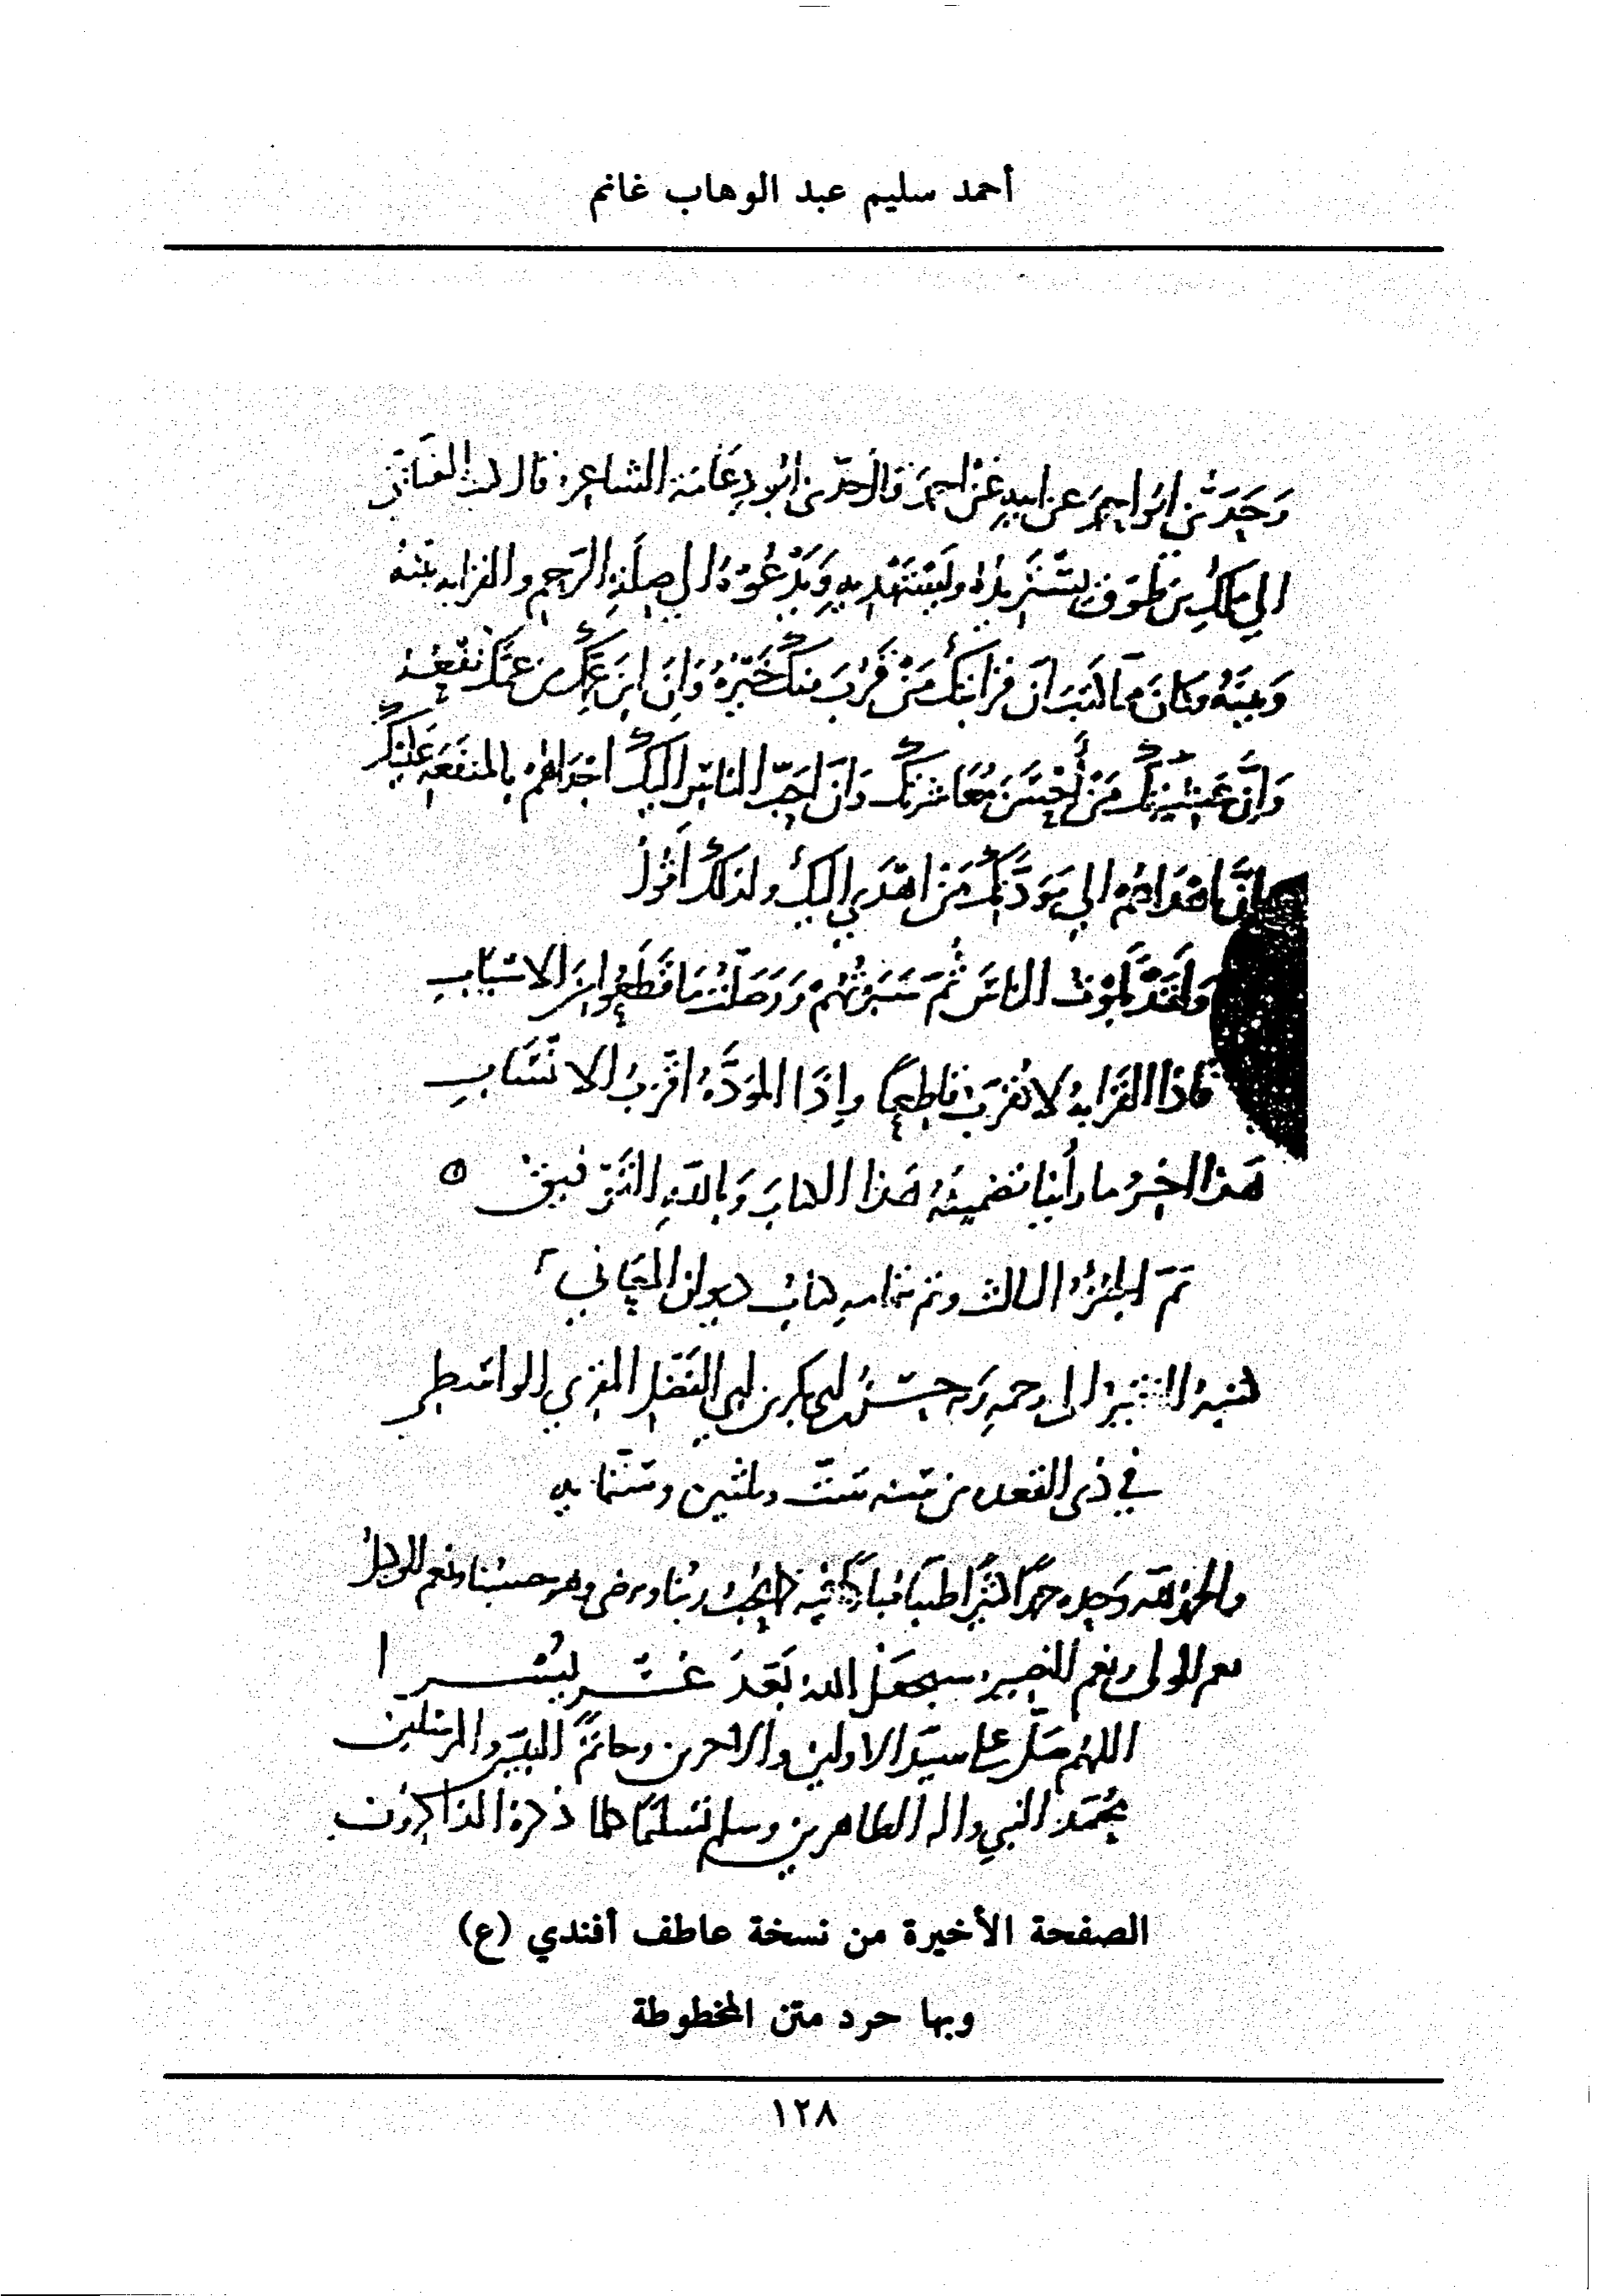 أحمد سليم عبد الوهاب غانم
وَحَدَّثَنِي ابْرَاهِيمَ عن ابيهِ عَنْ احمدَ قَالَ حدّثنى ابُو دِعَامَة الشاعِر قال كتب العَتابي
الي مَالكِ بن طَوْقٍ يَسْتَزِيدُهُ وَيَسْتَهْدِيهِ وَيَدْعُوْهُ الى صِلَةِ الرَّحِمِ والقرابه بَيْنَهُ
وَبينَهُ وَكَانَ مما كتبَ انَّ قرَابتكَ مَنْ قَرُبَ منكَ خَيْرُهُ وَانَّ ابنَ عَمِّكَ من عَمَّكَ نَفْعُهُ
وَانَّ عَشِيْرَتَكَ مَنْ أَحْسَنَ مُعَاشرَتكَ وَانَّ احَبَّ الناسِ اليكَ اجْدَاهُمْ بالمنفَعَهِ عَلَيْكَ
وانَّ اهْدَاهُمْ الي مَوَدَّتِكَ مَنْ اهْدَي اليكَ ولذلكَ اَقُولُ
وَلَقَدْ بَلَوْتُ الناسَ ثُمَّ سَبَرْتُهُمْ وَوَصَلْتُ مَا قَطَعُوا مِنَ الاسْبَابِ
فَاذا القَرَابهُ لا تُقَرِّبُ قاطِعًا واِذَا المَوَدَّهُ اقْرَبُ الانْسَابِ
هَذا اخِرُ ما راَينا تضمينَهُ هَذا الكتابَ وَباللّهِ التَّوْفيقُ ه
تَمّ الجُزْءُ الثالث وتم بتمامهِ كتابُ ديوان المعَاني
كتبهُ الفقيرُ الى رحمهِ رَبه بن ابي بكر بن ابي الفَضْلِ المقري الواسطي
في ذى القعده من سَنه سَتّ وثلثين وسَتّمايه
والحمدُ لله وَحده حمدًا كثيرًا طيبًا مُباركًا فيه كما يُحبُّ ربُّنا ويرضى وهو حسبُنا ونعم الوكيلُ
نعم المولى ونعم النصير سيجعَلُ اللهُ بَعْدَ عُسْرٍ يُسْرا
اللهُم صَلّ على سيّد الاولين والاخرين وخاتمُ النبيّين والمرسلين
مُحَمّد النبي واله الطاهرين وسلم تَسْليمًا كلما ذكرهُ الذاكرُون
الصفحة الأخيرة من نسخة عاطف أفندي (ع)
وبها حرد متن المخطوطة
١٢٨